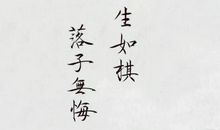 生如棋
落子無悔